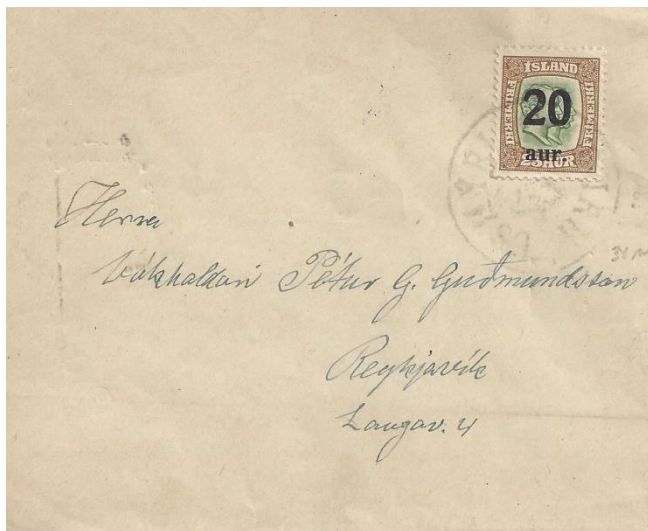 ÍSLAND
FRÍMERKI
FRÍMERKI
20
aur.
25 AUR
Herra
bókhaldari Pétur G. Guðmundsson
Reykjavík
Laugav. 4